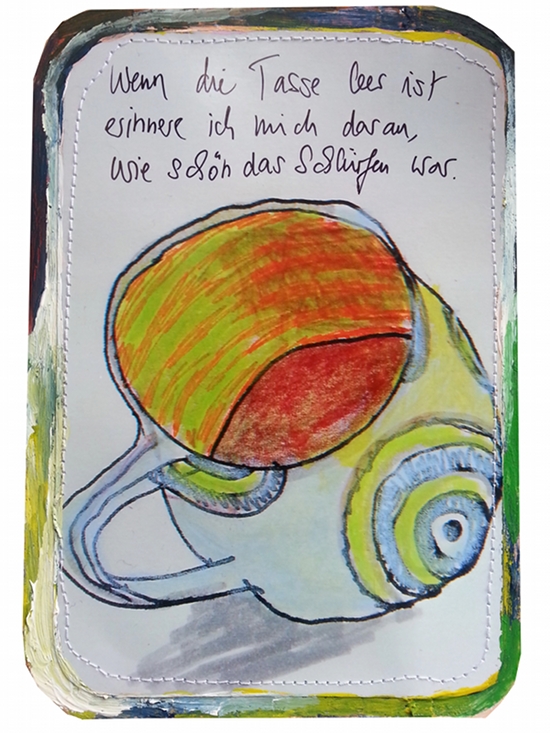 Wenn die Tasse leer ist
erinnere ich mich daran,
wie schön das Schlürfen war.